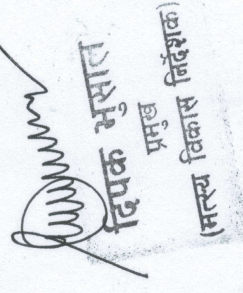 दिपक भुसाल
प्रमुख
(मत्स्य विकास निर्देशक)